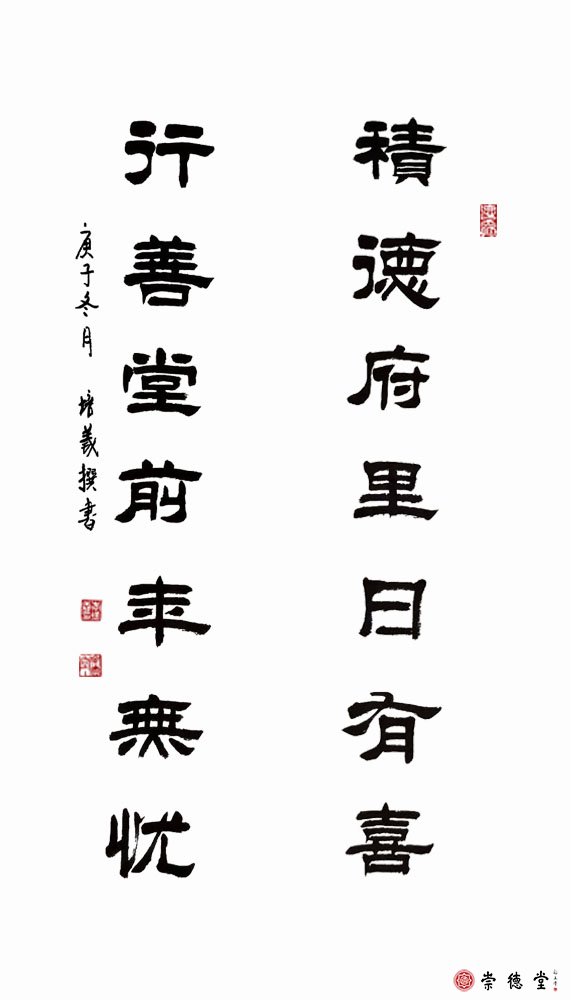 積德府里日有喜
行善堂前年無忧
庚子冬月 培義撰书
崇德堂